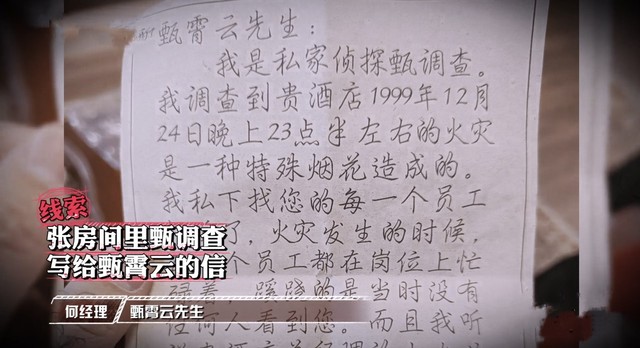 甄霄云先生：
我是私家侦探甄调查。
我调查到贵酒店1999年12月
24日晚上23点半左右的火灾
是一种特殊烟花造成的。
我私下找您的每一个员工
了，火灾发生的时候，
个员工都在岗位上忙
碌着，蹊跷的是当时没有
任何人看到您。而且我听
线索
张房间里甄调查
写给甄霄云的信
何经理
甄霄云先生